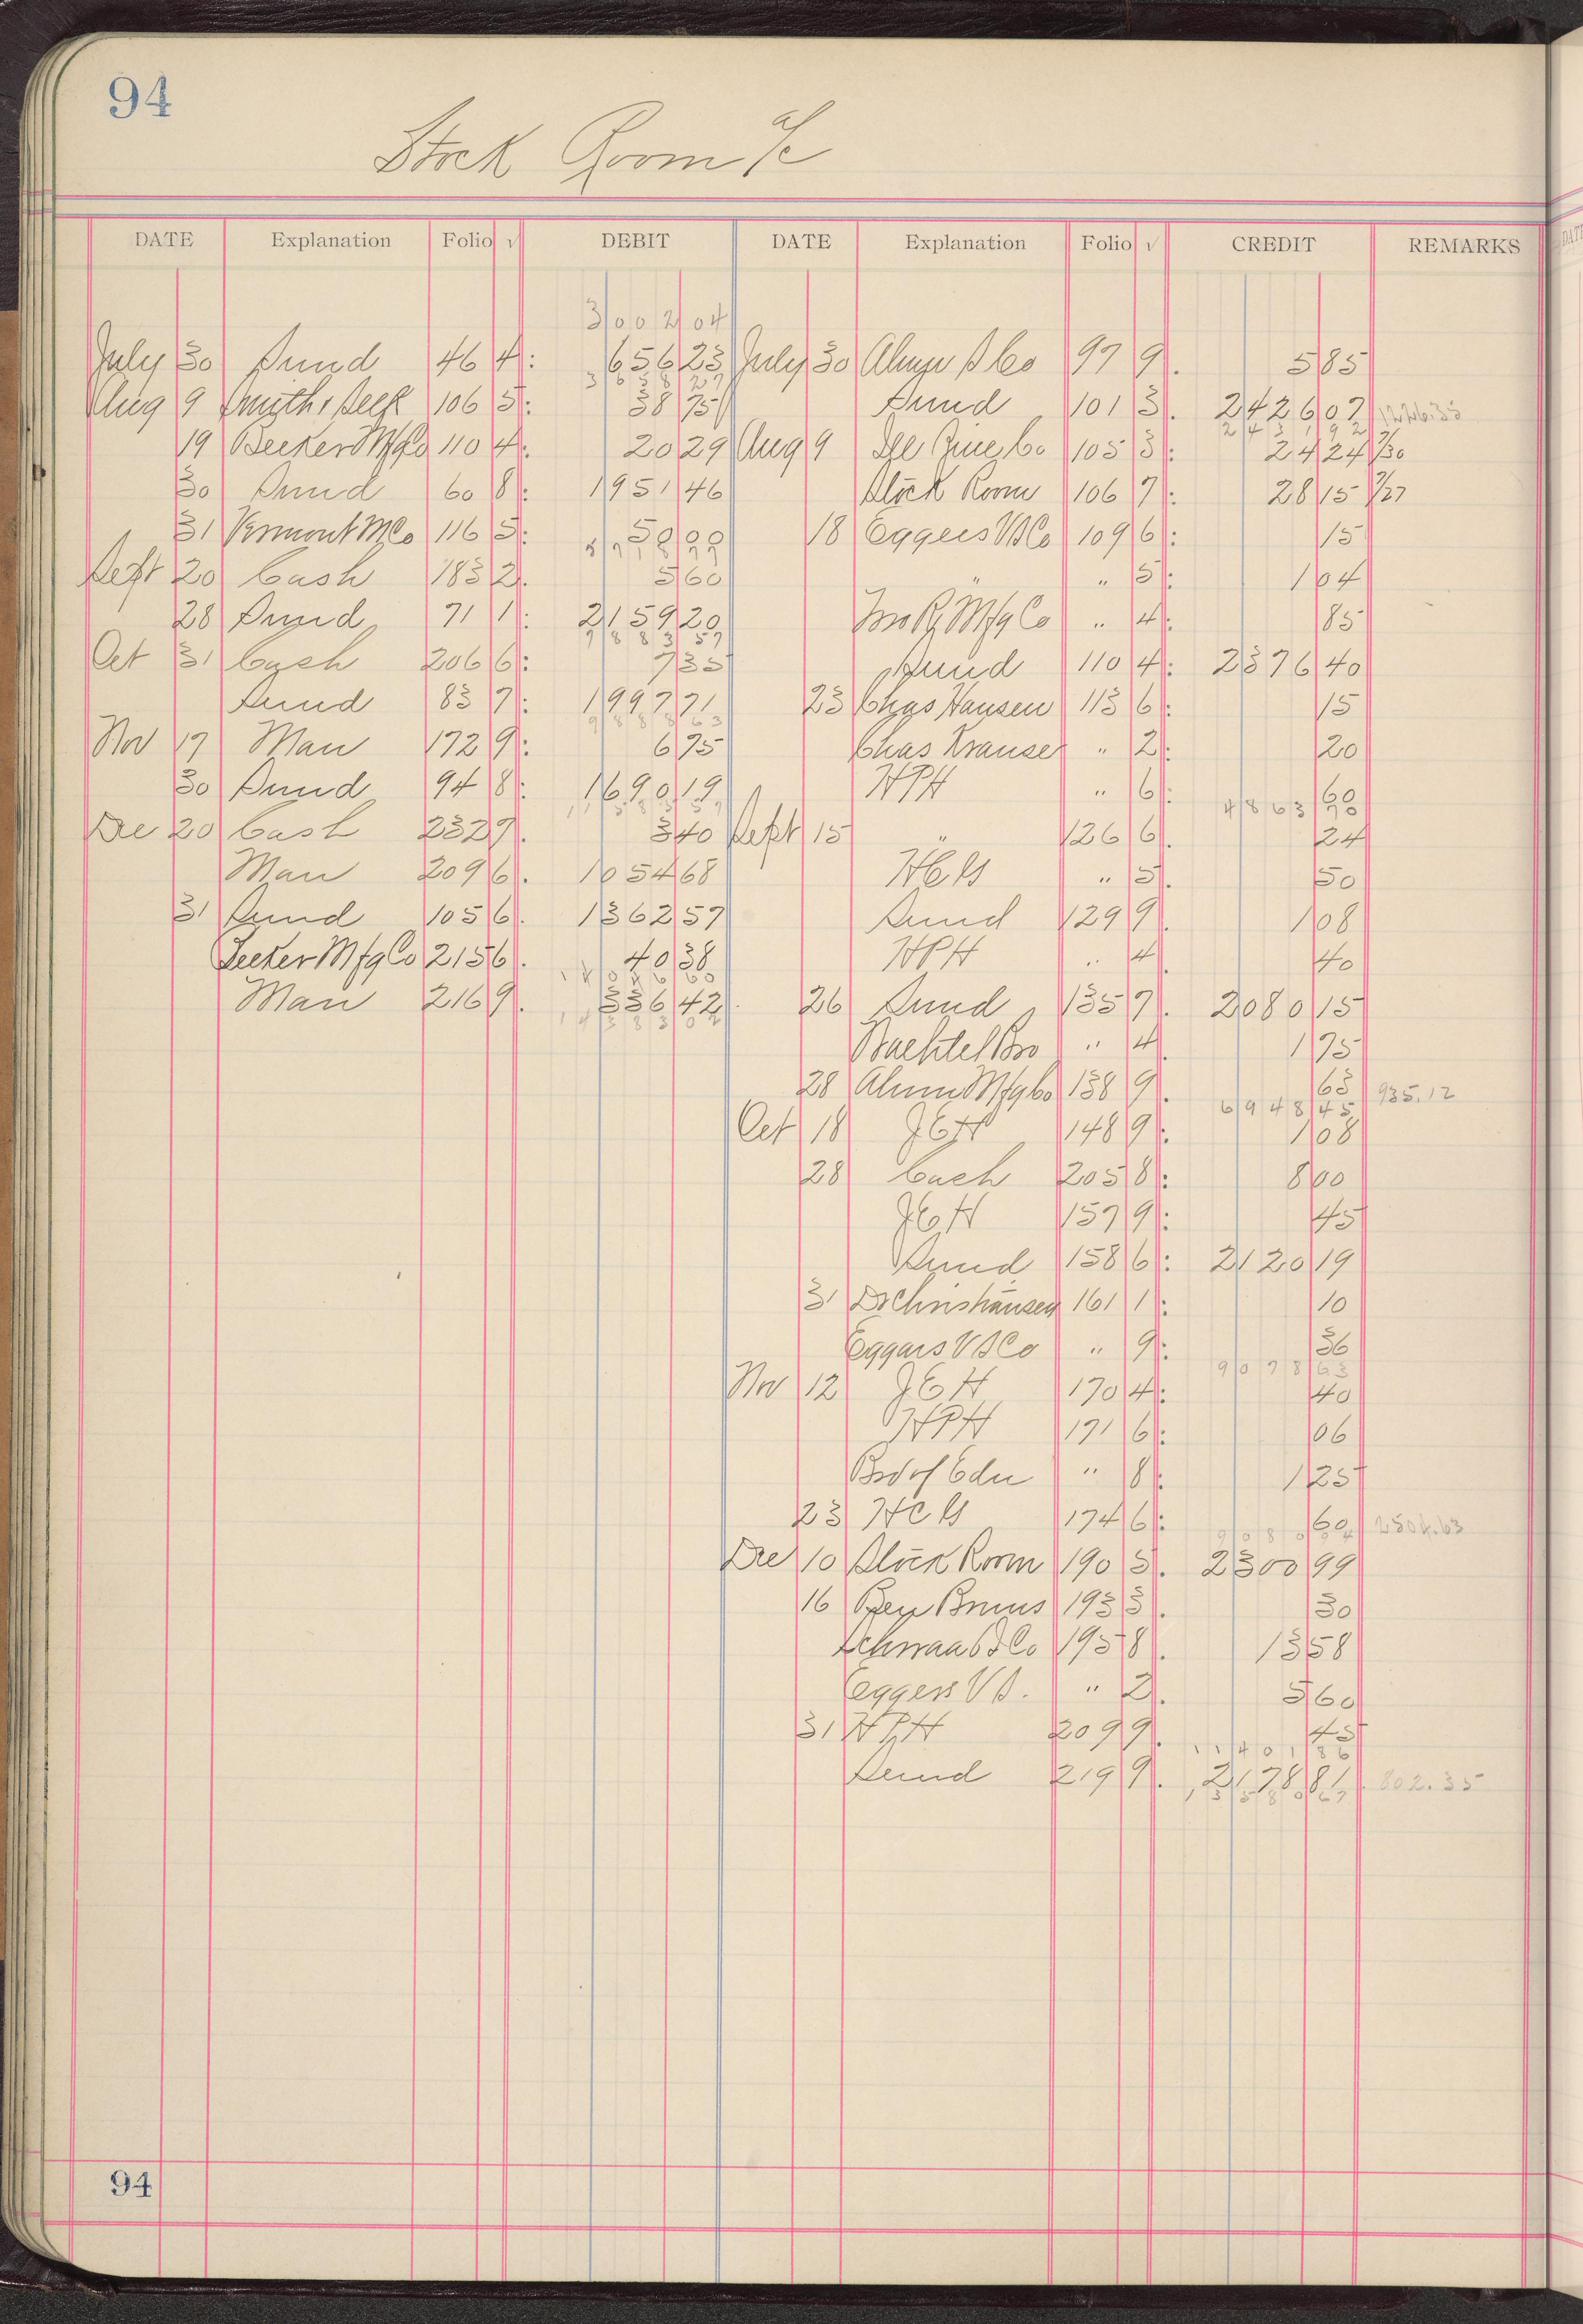 94
Stock Room a/c
DATE Explanation Folio √ DEBIT DATE Explanation Folio √ CREDIT REMARKS
3002 04
July 30 Sund 46 4 : 656 23 July 30 Alum S Co 97 9 . 5 85
3658 27
Aug 9 Smith & 106 5 : 38 75 Sund 101 3 . 2426 07 1226.35
2431 92
19 Becker Mfg Co 110 4 : 20 29 Aug 9 Co 105 3 : 24 24 7/30
30 Sund 60 8 : 1951 46 Stock Room 106 7 : 28 15 7/27
31 Vermont M Co 116 5 : 50 00 18 Eggers V S Co 109 6 : 15
5718 77
Sept 20 Cash 183 2 . 5 60 " " 5 : 1 04
28 Sund 71 1 : 2159 20 Mfg Co " 4 : 85
7883 57
Oct 31 Cash 206 6 : 7 35 Sund 110 4 : 2376 40
Sund 83 7 : 1997 71 23 Chas Hansen 113 6 : 15
9888 63
Nov 17 Man 172 9 : 6 75 Chas Krause " 2 : 20
30 Sund 94 8 : 1690 19 HPH " 6 : 60
11585 57 4863 70
Dec 20 Cash 232 7 . 3 40 Sept 15 " 126 6 . 24
Man 209 6 . 1054 68 " 5 . 50
31 Sund 105 6 . 1362 57 Sund 129 9 . 1 08
Becker Mfg Co 215 6 . 40 38 HPH " 4 . 40
14046 60
Man 216 9 . 336 42 26 Sund 135 7 . 2080 15
14383 02
Bachtel Bro " 4 . 1 75
28 Alum Mfg Co 138 9 . 63 935.12
6948 45
Oct 18 JEH 148 9 : 1 08
28 Cash 205 8 : 8 00
JEH 157 9 : 45
Sund 158 6 : 2120 19
31 Christiansen 161 1 : 10
Eggars V S Co " 9 : 36
9078 63
Nov 12 JEH 170 4 : 40
HPH 171 6 : 06
Bd of Edu " 8 : 1 25
23 174 6 : 60 2504.63
9080 94
Dec 10 Stock Room 190 5 . 2300 99
16 Ben Bruns 193 3 . 30
Schwaab S Co 195 8 . 13 58
Eggers V S. " 2 . 5 60
31 HPH 209 9 . 45
11401 86
Sund 219 9 . 2178 81 . 802.35
13580 67
94